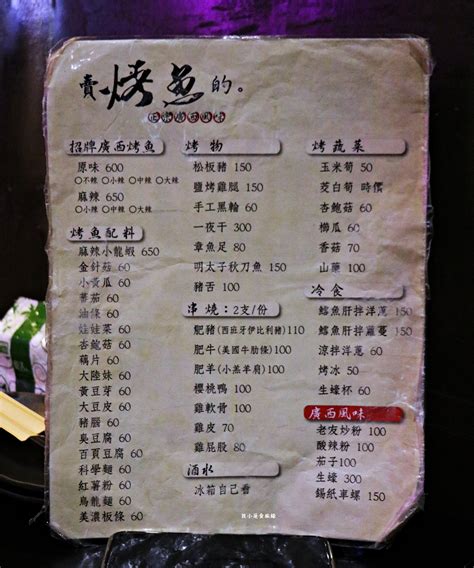 賣烤魚的。
招牌廣西烤魚
原味 600
○不辣 ○小辣 ○中辣 ○大辣
麻辣 650
○小辣 ○中辣 ○大辣
烤魚配料
麻辣小龍蝦 650
金針菇 60
小黃瓜 60
蕃茄 60
油條 60
娃娃菜 60
杏鮑菇 60
藕片 60
大陸妹 60
黃豆芽 60
大豆皮 60
豬腦 60
臭豆腐 60
百頁豆腐 60
科學麵 60
紅薯粉 60
烏龍麵 60
美濃板條 60
烤物
松板豬 150
鹽烤雞腿 150
手工黑輪 60
一夜干 300
章魚足 80
明太子秋刀魚 150
豬舌 100
串燒:2支/份
肥豬(西班牙伊比利豬)110
肥牛(美國牛肋條)100
肥羊(小羔羊肩)100
櫻桃鴨 100
雞軟骨 100
雞皮 70
雞屁股 80
酒水
冰箱自己看
烤蔬菜
玉米筍 50
茭白筍 時價
杏鮑菇 60
櫛瓜 60
香菇 70
山藥 100
冷食
鱈魚肝拌洋蔥 150
鱈魚肝拌雞蔓 150
涼拌洋蔥 60
烤冰 50
生蠔杯 60
廣西風味
老友炒粉 100
酸辣粉 100
茄子100
生蠔 300
錫紙車螺 150